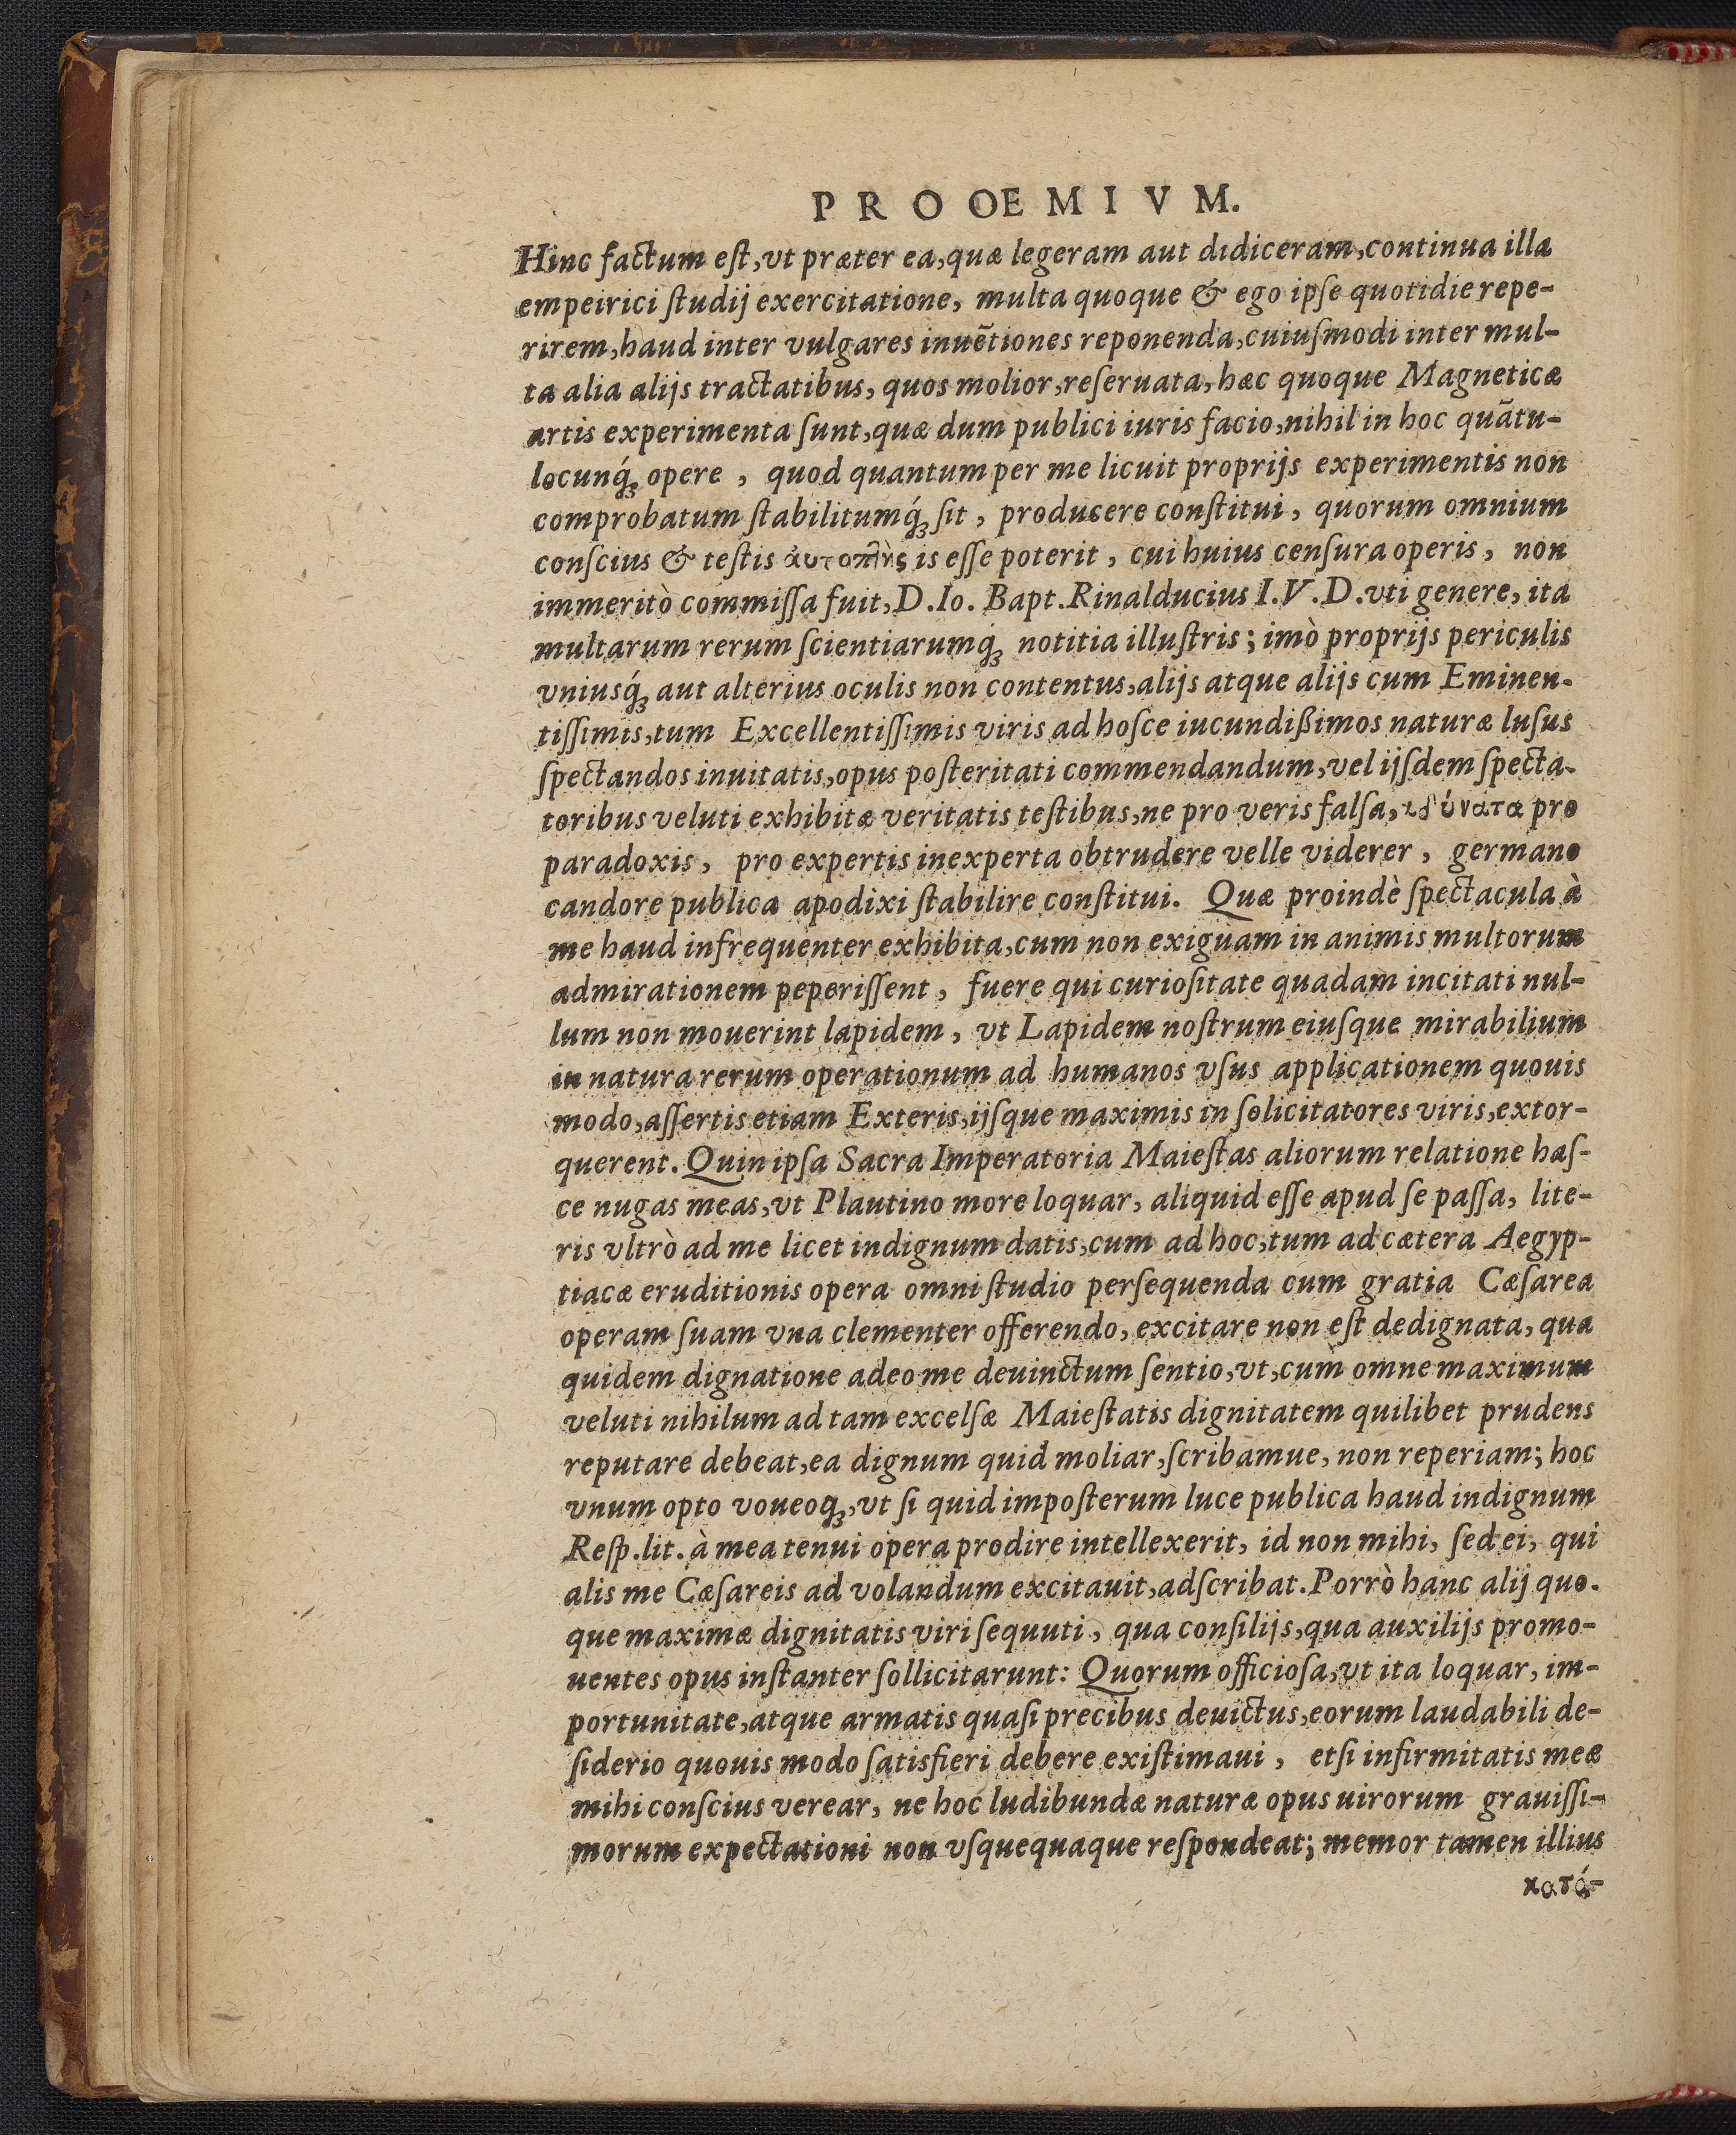 PROOEMIVM.
Hinc factum eſt, vt præter ea, quæ legeram aut didiceram, continua illa
empeirici ſtudij exercitatione, multa quoque & ego ipſe quotidie repe-
rirem, haud inter vulgares inuẽtiones reponenda, cuiuſmodi inter mul-
ta alia alijs tractatibus, quos molior, reſeruata, hæc quoque Magneticæ
artis experimenta ſunt, quæ dum publici iuris facio, nihil in hoc quãtu-
locunq́ꝫ opere, quod quantum per me licuit proprijs experimentis non
comprobatum ſtabilitumq́ꝫ ſit, producere conſtitui, quorum omnium
conſcius & teſtis ἀυτοπτὴς is eſſe poterit, cui huius cenſura operis, non
immeritò commiſſa fuit, D. Io. Bapt. Rinalducius I.V.D. vti genere, ita
multarum rerum ſcientiarumq́ꝫ notitia illuſtris; imò proprijs periculis
vniusq́ꝫ aut alterius oculis non contentus, alijs atque alijs cum Eminen-
tiſſimis, tum Excellentiſſimis viris ad hoſce iucundißimos naturæ luſus
ſpectandos inuitatis, opus poſteritati commendandum, vel ijſdem ſpecta-
toribus veluti exhibitæ veritatis teſtibus, ne pro veris falſa, ἀδύνατα pro
paradoxis, pro expertis inexperta obtrudere velle viderer, germano
candore publica apodixi ſtabilire conſtitui. Quæ proindè ſpectacula à
me haud infrequenter exhibita, cum non exiguam in animis multorum
admirationem peperiſſent, fuere qui curioſitate quadam incitati nul-
lum non mouerint lapidem, vt Lapidem noſtrum eiuſque mirabilium
in natura rerum operationum ad humanos vſus applicationem quouis
modo, aſſertis etiam Exteris, ijſque maximis in ſolicitatores viris, extor-
querent. Quin ipſa Sacra Imperatoria Maieſtas aliorum relatione haſ-
ce nugas meas, vt Plautino more loquar, aliquid eſſe apud ſe paſſa, lite-
ris vltrò ad me licet indignum datis, cum ad hoc, tum ad cætera Aegyp-
tiacæ eruditionis opera omni ſtudio perſequenda cum gratia Cæſarea
operam ſuam vna clementer offerendo, excitare non eſt dedignata, qua
quidem dignatione adeo me deuinctum ſentio, vt, cum omne maximum
veluti nihilum ad tam excelſæ Maieſtatis dignitatem quilibet prudens
reputare debeat, ea dignum quid moliar, ſcribamue, non reperiam; hoc
vnum opto voueoqꝫ, vt ſi quid impoſterum luce publica haud indignum
Reſp. lit. à mea tenui opera prodire intellexerit, id non mihi, ſed ei, qui
alis me Cæſareis ad volandum excitauit, adſcribat. Porrò hanc alij quo-
que maximæ dignitatis viri ſequuti, qua conſilijs, qua auxilijs promo-
uentes opus inſtanter ſollicitarunt: Quorum officioſa, vt ita loquar, im-
portunitate, atque armatis quaſi precibus deuictus, eorum laudabili de-
ſiderio quouis modo ſatisfieri debere exiſtimaui, etſi infirmitatis meæ
mihi conſcius verear, ne hoc ludibundæ naturæ opus uirorum grauiſſi-
morum expectationi non vſquequaque reſpondeat; memor tamen illius
κατά-